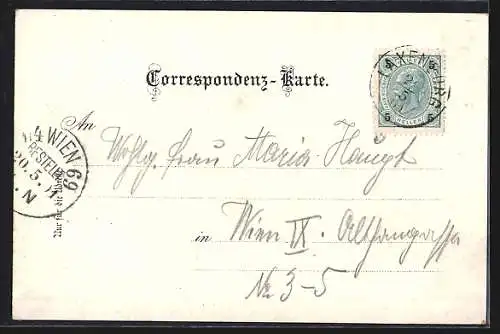 Correspondenz-Karte.
5 5
HELLER
LAXENBURG
An
Wohlg. Frau Maria Haupt
in Wien IX. Althangasse
№ 3-5
4 WIEN
BESTELLT
20.5.
69
N
Nur für die Adresse